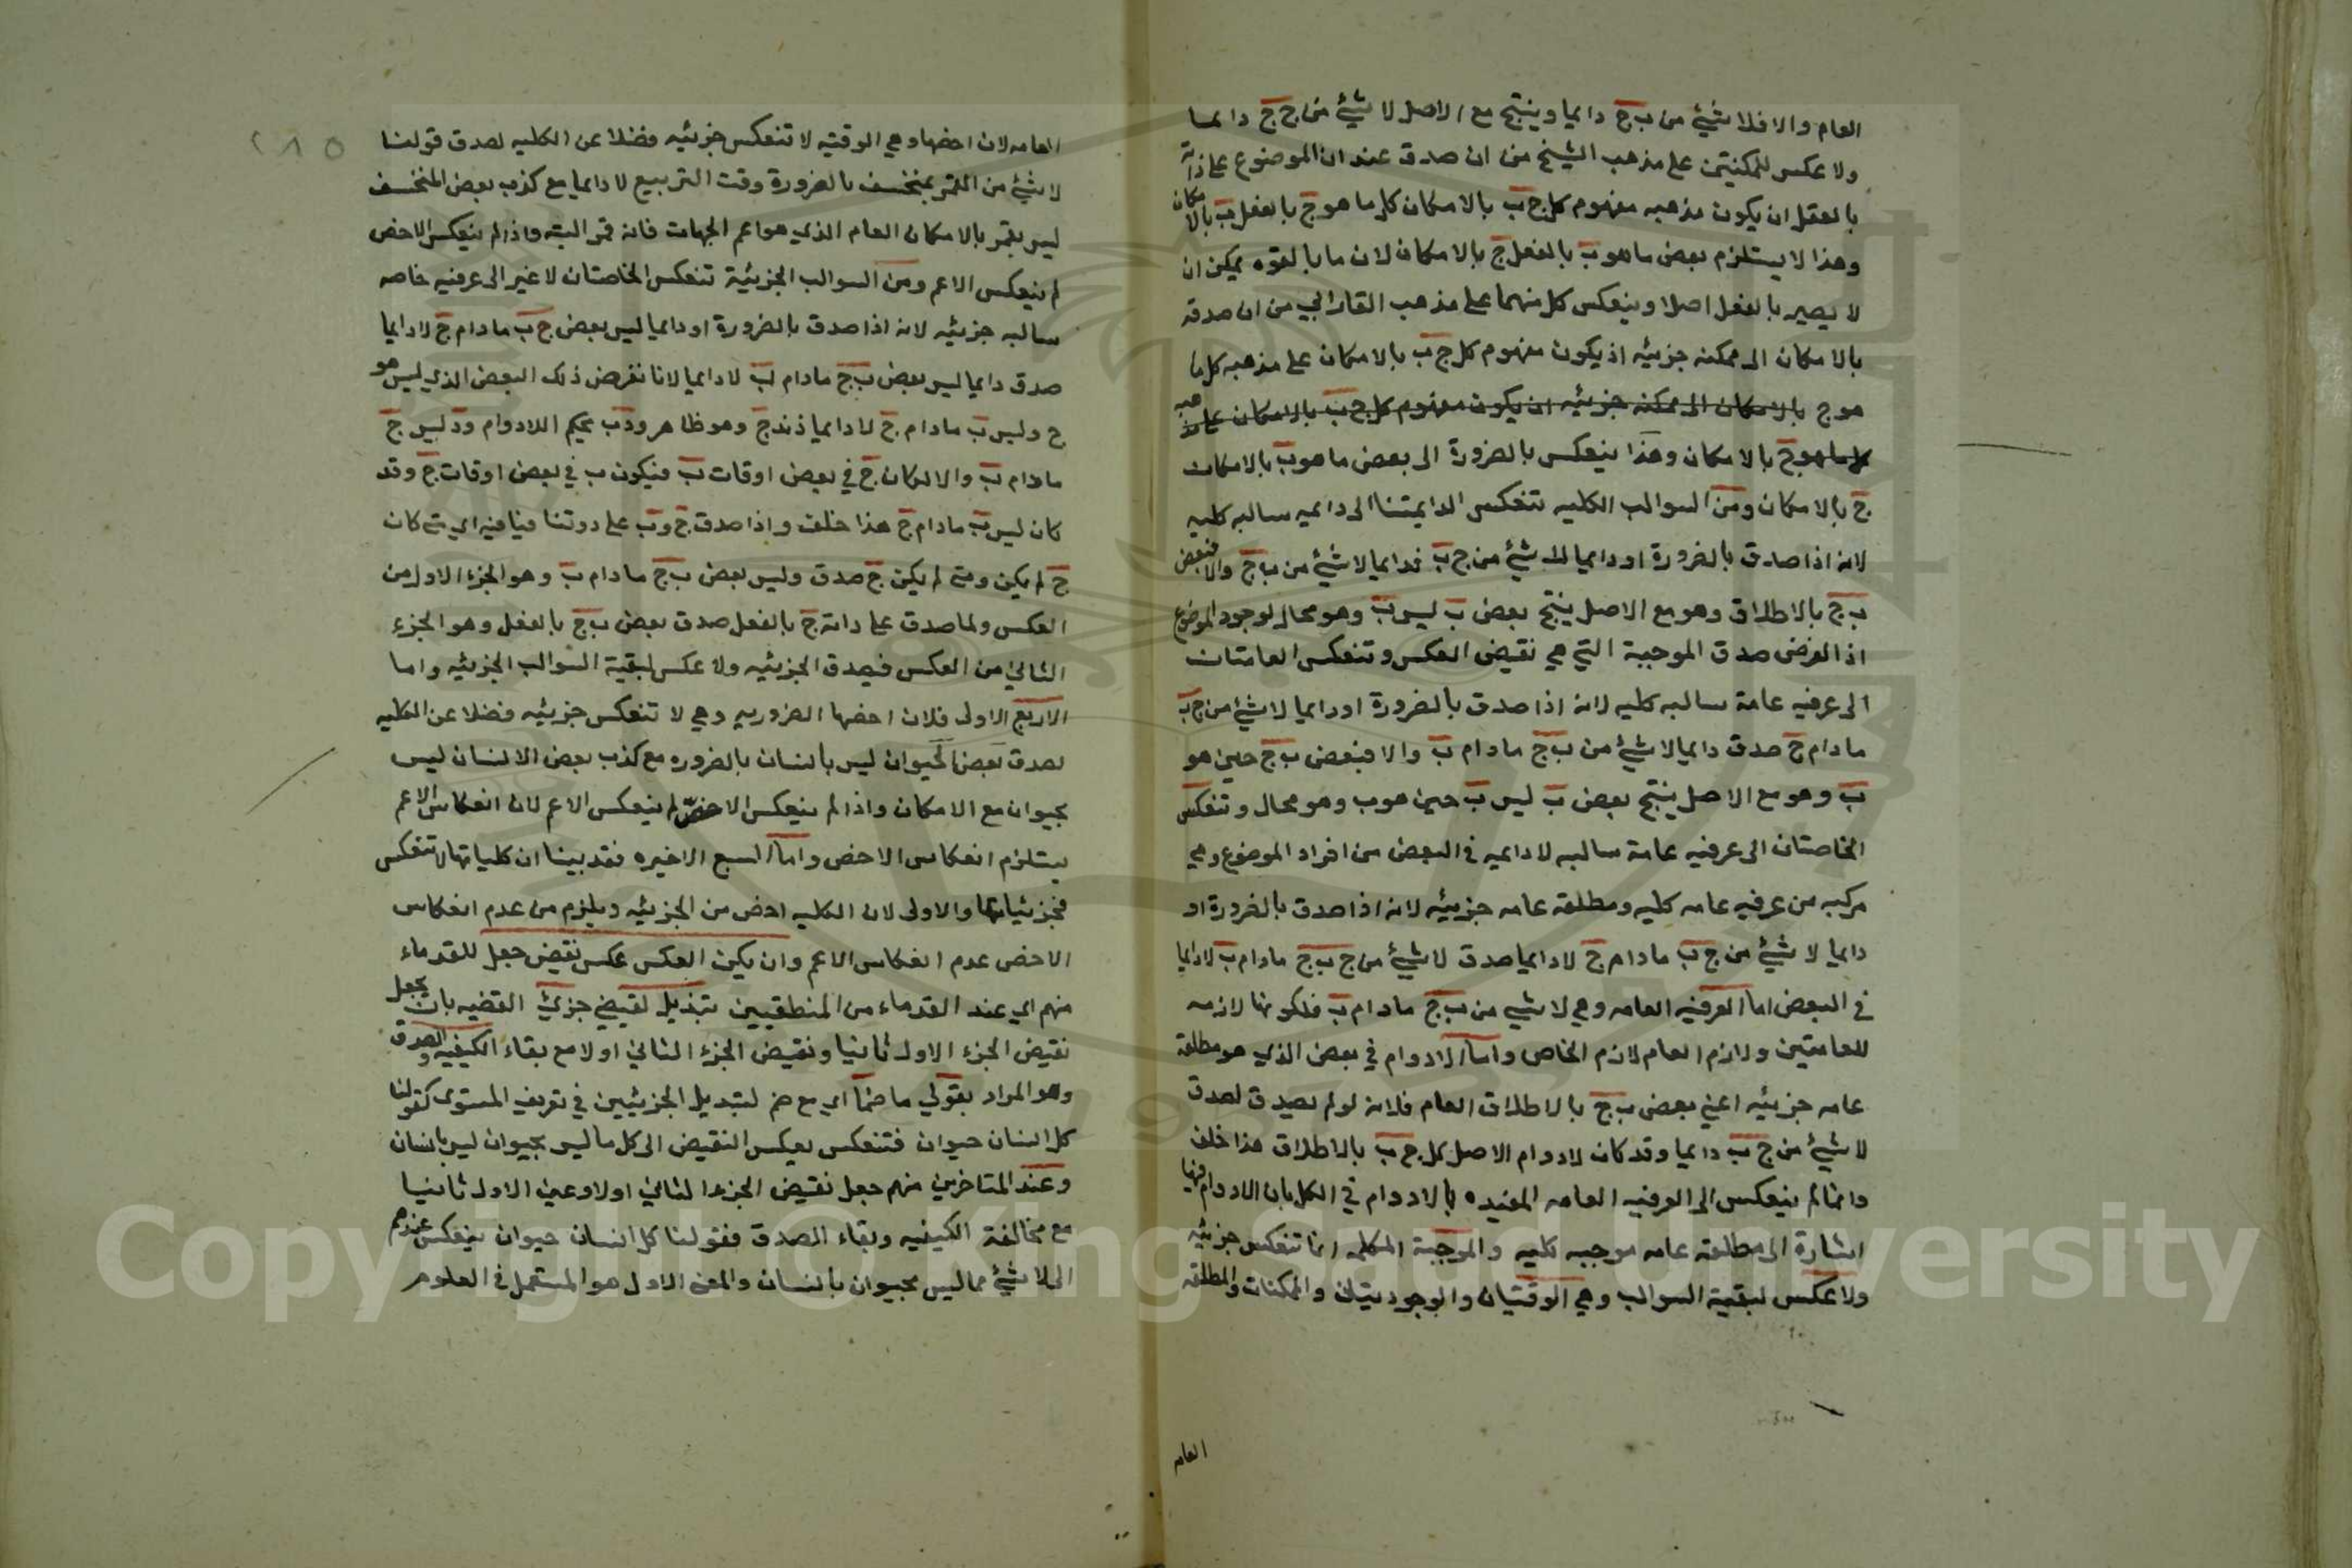 العام والا فلا شيئ من ب ج دايما وينتج مع الاصل لا شيئ من ج ج دايما
ولا عكس للمكنتين على مذهب الشيخ من ان صدق عنوان الموضوع على ذاته
بالفعل ان يكون مذهبه مفهوم كل ج ب بالامكان كل ما هو ج بالفعل ب بالامكان
وهذا لا يستلزم بعض ما هو ب بالفعل ج بالامكان لان ما بالقوه يمكن ان
لا يصير بالفعل اصلا وينعكس كل منهما على مذهب الفارابي من ان صدقه
بالامكان الى ممكنه جزئيه اذ يكون مفهوم كل ج ب بالامكان على مذهبه كل ما
هو ج بالامكان الى ممكنه جزئيه ان يكون مفهوم كل ج ب بالامكان على مذهبه
كل ما هو ج بالامكان وهذا ينعكس بالضرورة الى بعض ما هو ب بالامكان
ج بالامكان ومن السوالب الكليه تنعكس الدايمتنا الى دايميه سالبه كليه
لانه اذا صدق بالضرورة او دايما لا شيئ من ج ب فدايما لا شيئ من ب ج والا فبعض
ب ج بالاطلاق وهو مع الاصل ينتج بعض ب ليس ب وهو محال لوجود الموضوع
اذ الفرض صدق الموجبة التي هي نقيض العكس وتنعكس العامتان
الى عرفيه عامة سالبه كليه لانه اذا صدق بالضرورة او دايما لا شيئ من ج ب
ما دام ج صدق دايما لا شيئ من ب ج ما دام ب والا فبعض ب ج حين هو
ب وهو مع الاصل ينتج بعض ب ليس ب حين هو ب وهو محال وتنعكس
الخاصتان الى عرفيه عامة سالبه لا دايميه في البعض من افراد الموضوع وهي
مركبه من عرفيه عامه كليه ومطلقه عامه جزئيه لانه اذا صدق بالضرورة او
دايما لا شيئ من ج ب ما دام ج لا دايما صدق لا شيئ من ج ب ج ما دام ب لا دايما
في البعض اما العرفيه العامه وهي لا شيئ من ب ج ما دام ب فلكونها لازمه
للعامتين ولازم العام لازم الخاص واما الادوام في بعض الذي هو مطلقة
عامه جزئيه اعني بعض ب ج بالاطلاق العام فلانه لو لم يصدق لصدق
لا شيئ من ج ب دايما وقد كان لادوام الاصل كل ج ب بالاطلاق هذا خلف
وانما لم ينعكس الى العرفيه العامه المقيده بالادوام في الكل بان الادوام فيها
اشارة الى مطلقه عامه موجبه كليه والموجبة الكليه انما تنعكس جزئيه
ولا عكس لبقية السوالب وهي الوقتيان والوجوديتان والممكنات والمطلقه
العامه
٢٨٥
العامه لان اخصها وهي الوقتيه لا تنعكس جزئيه فضلا عن الكليه لصدق قولنا
لا شيئ من القمر بمنخسف بالضرورة وقت التربيع لا دايما مع كذب بعض المنخسف
ليس بقمر بالامكان العام الذي هو اعم الجهات فانه قمر البته واذا لم ينعكس الاخص
لم ينعكس الاعم ومن السوالب الجزئية تنعكس الخاصتان لا غير الى عرفيه خاصه
سالبه جزئيه لانه اذا صدق بالضرورة او دايما ليس بعض ج ب ما دام ج لا دايما
صدق دايما ليس بعض ب ج ما دام ب لا دايما لانا نفرض ذلك البعض الذي ليس هو
ج وليس ب ما دام ج لا دايما د فد ج وهو ظاهر ود ب بحكم اللادوام ود ليس ج
ما دام ب والا لكان ج في بعض اوقات ب فيكون ب في بعض اوقات ج وقد
كان ليس ب ما دام ج هذا خلف واذا صدق ج وب على د وتنافيا فيه اي متى كان
ج لم يكن ومتى لم يكن ج صدق وليس بعض ب ج ما دام ب وهو الجزء الاول من
العكس ولما صدق على داته ج بالفعل صدق بعض ب ج بالفعل وهو الجزء
الثاني من العكس فيصدق الجزئيه ولا عكس لبقية السوالب الجزئيه واما
الاربع الاولى فلان اخصها الضروريه وهي لا تنعكس جزئيه فضلا عن الكليه
لصدق بعض الحيوان ليس بانسان بالضروره مع كذب بعض الانسان ليس
بحيوان مع الامكان واذا لم ينعكس الاخص لم ينعكس الاعم لان انعكاس الاعم
يستلزم انعكاس الاخص واما السبع الاخيره فقد بينا ان كلياتها لا تنعكس
فجزئياتها والاولى لان الكليه اخص من الجزئيه ويلزم من عدم انعكاس
الاخص عدم انعكاس الاعم وان يكن العكس عكس نقيض جعل للقدماء
منهم اي عند القدماء من المنطقيين بتبديل نقيضي جزئي القضيه بان يجعل
نقيض الجزء الاول ثانيا ونقيض الجزء الثاني اولا مع بقاء الكيفيه والصدق
وهو المراد بقولي ما ضما اي مع ضم لتبديل الجزئيين في تعريف المستوى كقولنا
كل انسان حيوان فتنعكس بعكس النقيض الى كل ما ليس بحيوان ليس بانسان
وعند المتاخرين منهم جعل نقيض الجزء الثاني اولا وعين الاول ثانيا
مع مخالفة الكيفيه وبقاء الصدق فقولنا كل انسان حيوان ينعكس عندهم
الى لا شيئ مما ليس بحيوان بانسان والمعنى الاول هو المستعمل في العلوم
Copyright © King Saud University